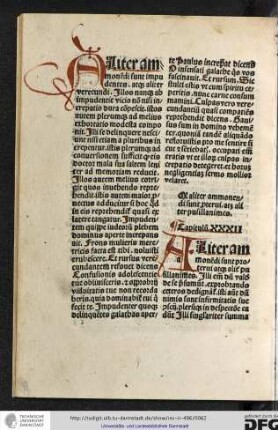 Aliter am
monēdi sunt impu
dentes. atq; aliter
verecundi. Illos nunq; ab
impudentie vicio nō nisi in
crepatio dura cōpescit. istos
autem plerumq; ad melius
exhortatio modesta compo
nit. Illi se delinquere nesci
unt nisi etiam a pluribus in
crepentur. istis plerumq; ad
conuersionem sufficit q; eis
doctor mala sua saltem leni
ter ad memoriam reducit.
Illos autem melius corri
git quos inuehendo repre
hendit. istis autem maior p
uectus adducitur si hoc qd in
eis reprehendit quasi ex
latere tangatur. Impuden
tem quippe iudeorū plebem
dominus aperte increpans
ait. Frons mulieris mere
tricis facta est tibi. noluisti
erubescere. Et rursus vere
cundantem refouet dicens.
Confusionis adolescentie
tue obliuisceris. et opprobrii
viduitatis tue non recorda
beris. quia dominabit̄ tui q
fecit te. Impudenter quoq;
delinquētes galathas aper
te Paulus increpat dicens
O insensati galathe q̄s vos
fascinauit. Et rursum. Sic
stulti estis vt cum spiritu ce
peritis. nunc carne consum
mamini. Culpas vero vere
cundantiū quasi compatiēs
reprehendit dicens. Gaui
sus sum in domino vehemē
ter. quoniā tandē aliquādo
refloruistis pro me sentire si
cut et sentiebatis. occupati em̄
eratis vt et illius culpas in
crepatio detegeret et horum
negligentias sermo mollior
velaret.
Qd aliter ammonen
di sunt proterui. atq; ali
ter pusillanimes.
Capitulū. XXXII
Aliter am
monēdi sunt pro
terui atq; aliter pu
sillanimes. Illi em̄ dū valde
de se p̄sumūt. exprobrando
ceteros dedignant̄. isti autē dū
nimis sunt infirmitatis sue
cōscij. plerūq; in desperatiōe ca
dūt. Illi singulariter summa
http://tudigit.ulb.tu-darmstadt.de/show/inc-ii-496/0062
Universitäts- und Landesbibliothek Darmstadt
TECHNISCHE
UNIVERSITÄT
DARMSTADT